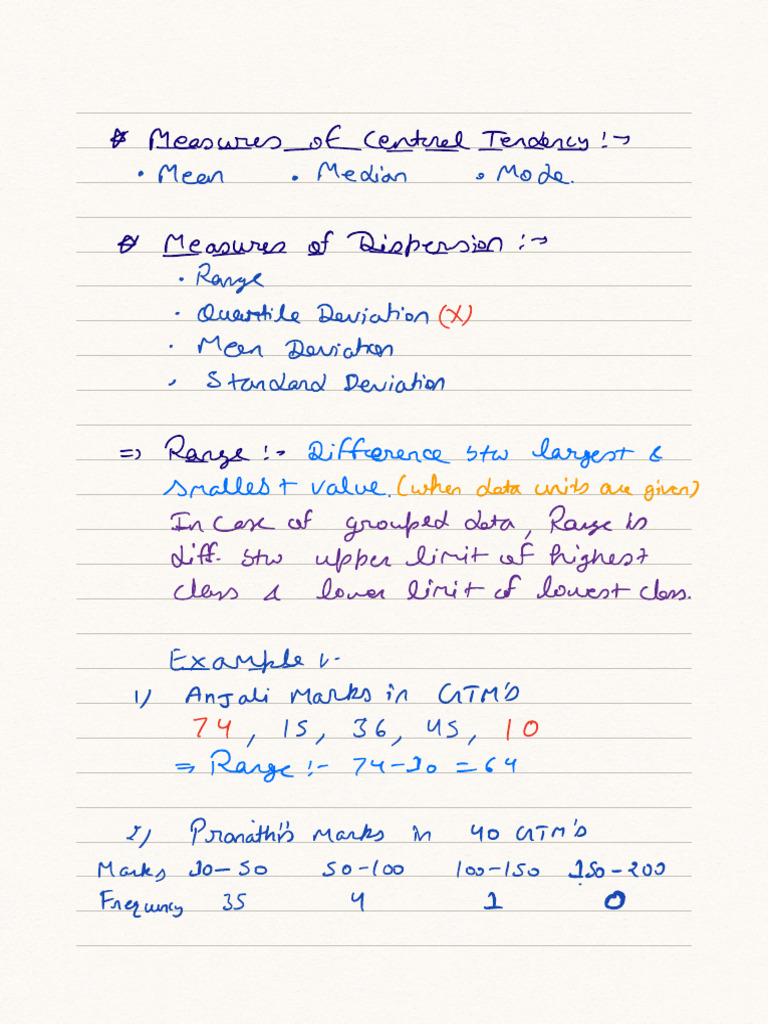 * Measures of Central Tendency :->
• Mean • Median • Mode.
* Measures of Dispersion :->
• Range
• Quartile Deviation (X)
• Mean Deviation
• Standard Deviation
=> Range :- Difference btw largest &
smallest value. (when data units are given)
In case of grouped data, Range is
diff. btw upper limit of highest
class & lower limit of lowest class.
Example :-
1) Anjali Marks in GTM's
74, 15, 36, 45, 10
=> Range :- 74-10 = 64
2) Pranathi's Marks in 40 GTM's
Marks 10-50 50-100 100-150 150-200
Frequency 35 4 1 0